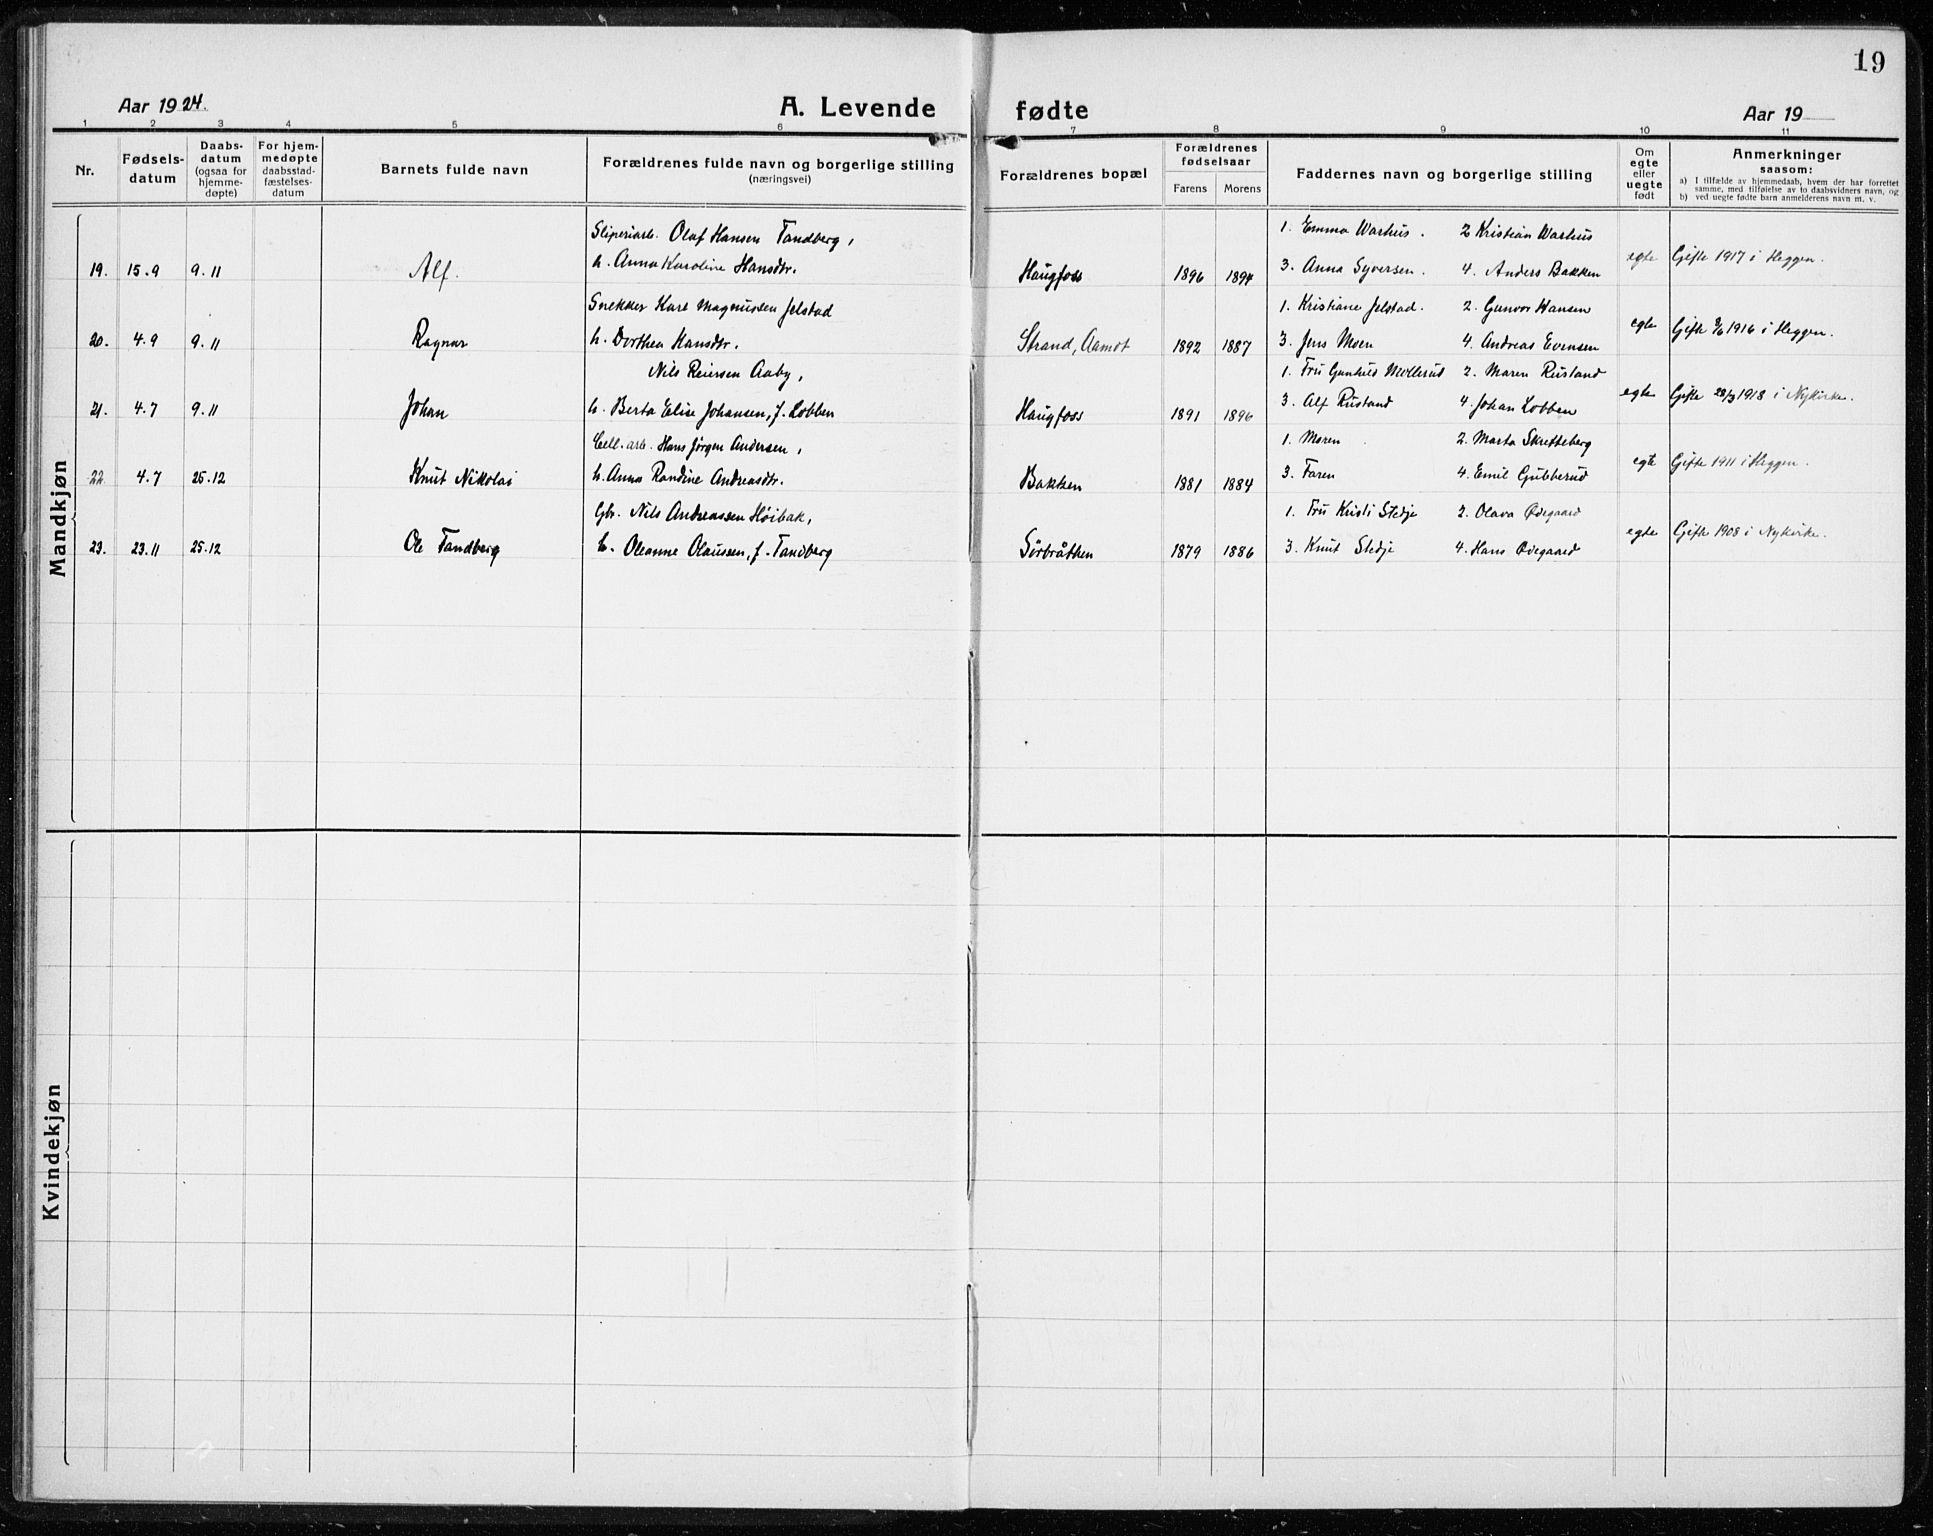 19
Aar 1924.
A. Levende fødte
Aar 19
1 2 3 4 5 6 7 8 9 10 11
Nr.
Fødsels-
datum
Daabs-
datum
(ogsaa for
hjemme-
døpte)
For hjem-
medøpte
daabsstad-
fæstelses-
datum
Barnets fulde navn
Forældrenes fulde navn og borgerlige stilling
(næringsvei)
Forældrenes bopæl
Forældrenes
fødselsaar
Farens Morens
Faddernes navn og borgerlige stilling
Om
egte
eller
uegte
født
Anmerkninger
saasom:
a) I tilfælde av hjemmedaab, hvem der har forrettet
samme, med tilføielse av to daabsvidners navn, og
b) ved uegte fødte barn anmelderens navn m. v.
Mandkjøn
Sliperiarb. Olaf Hansen Tandberg, 1. Emma Warhus. 2 Kristian Warhus
19. 15.9 9.11 Alf. h. Anna Karoline Hansdtr. Haugfoss 1896 1894 3. Anna Syversen. 4. Anders Bakken egte Gifte 1917 i Heggen.
Snekker Karl Magnussen Jelstad 1. Kristiane Jelstad. 2. Gunvor Hansen
20. 4.9 9.11 Ragnar h. Dorthea Hansdtr. Strand, Aamot 1892 1887 3. Jens Moen 4. Andreas Evensen egte Gifte 1916 i Heggen.
Nils Reiersen Aaby, 1. Fru Gunhild Møllerud 2. Maren Rustand
21. 4.7 9.11 Johan h. Berta Elise Johansen, f. Lobben Haugfoss 1891 1896 3. Alf Rustand 4. Johan Lobben egte Gifte 29/3 1918 i Nykirke.
Cell. arb. Hans Jørgen Andersen, 1. Moren 2. Marta Skretteberg
22 4.7 25.12 Knut Nikolai h. Anna Randine Andreasdtr. Bakken 1881 1884 3. Faren 4. Emil Gubberud egte Gifte 1911 i Heggen.
Gbr. Nils Andreassen Høibak, 1. Fru Kristi Stedje 2. Olava Ødegaard
23. 23.11 25.12 Ole Tandberg h. Oleanne Olaussen, f. Tandberg Sørbråtken 1879 1886 3. Knut Stedje 4. Hans Ødegaard egte Gifte 1908 i Nykirke.
Kvindekjøn